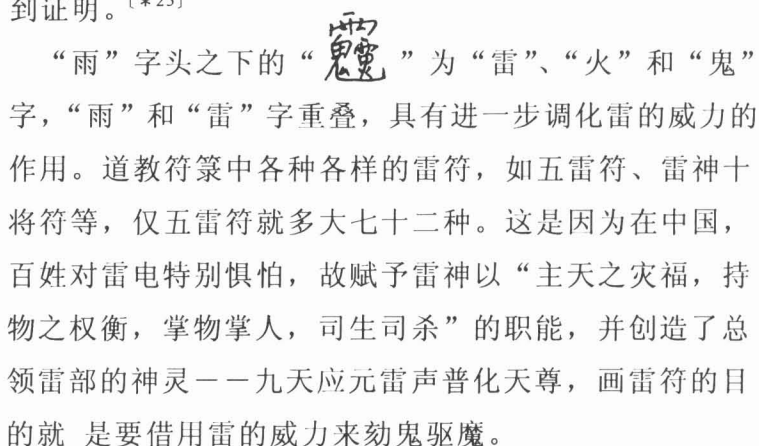 到证明。〔*25〕
“雨”字头之下的“ ”为“雷”、“火”和“鬼”
字，“雨”和“雷”字重叠，具有进一步调化雷的威力的
作用。道教符箓中各种各样的雷符，如五雷符、雷神十
将符等，仅五雷符就多大七十二种。这是因为在中国，
百姓对雷电特别惧怕，故赋予雷神以“主天之灾福，持
物之权衡，掌物掌人，司生司杀”的职能，并创造了总
领雷部的神灵－－九天应元雷声普化天尊，画雷符的目
的就 是要借用雷的威力来劾鬼驱魔。